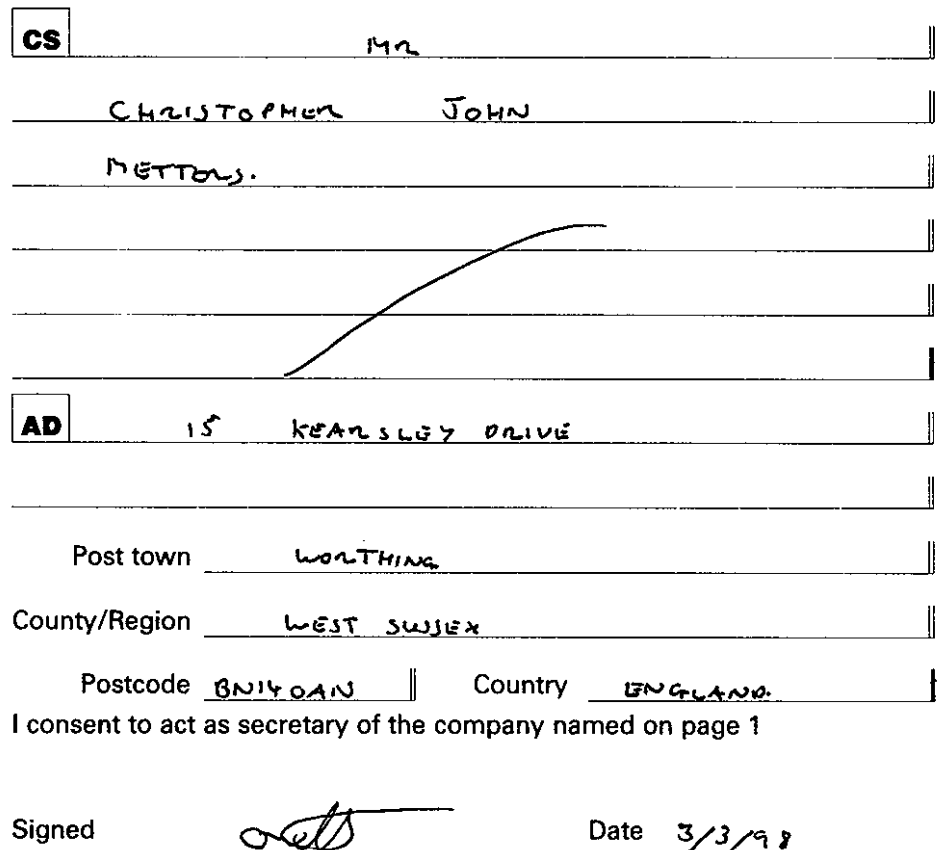 CS MR
CHRISTOPHER JOHN
METTORS.
AD 15 KEARSLEY DRIVE
Post town WORTHING
County/Region WEST SUSSEX
Postcode BN14 0AN Country ENGLAND.
I consent to act as secretary of the company named on page 1
Signed Date 3/3/98